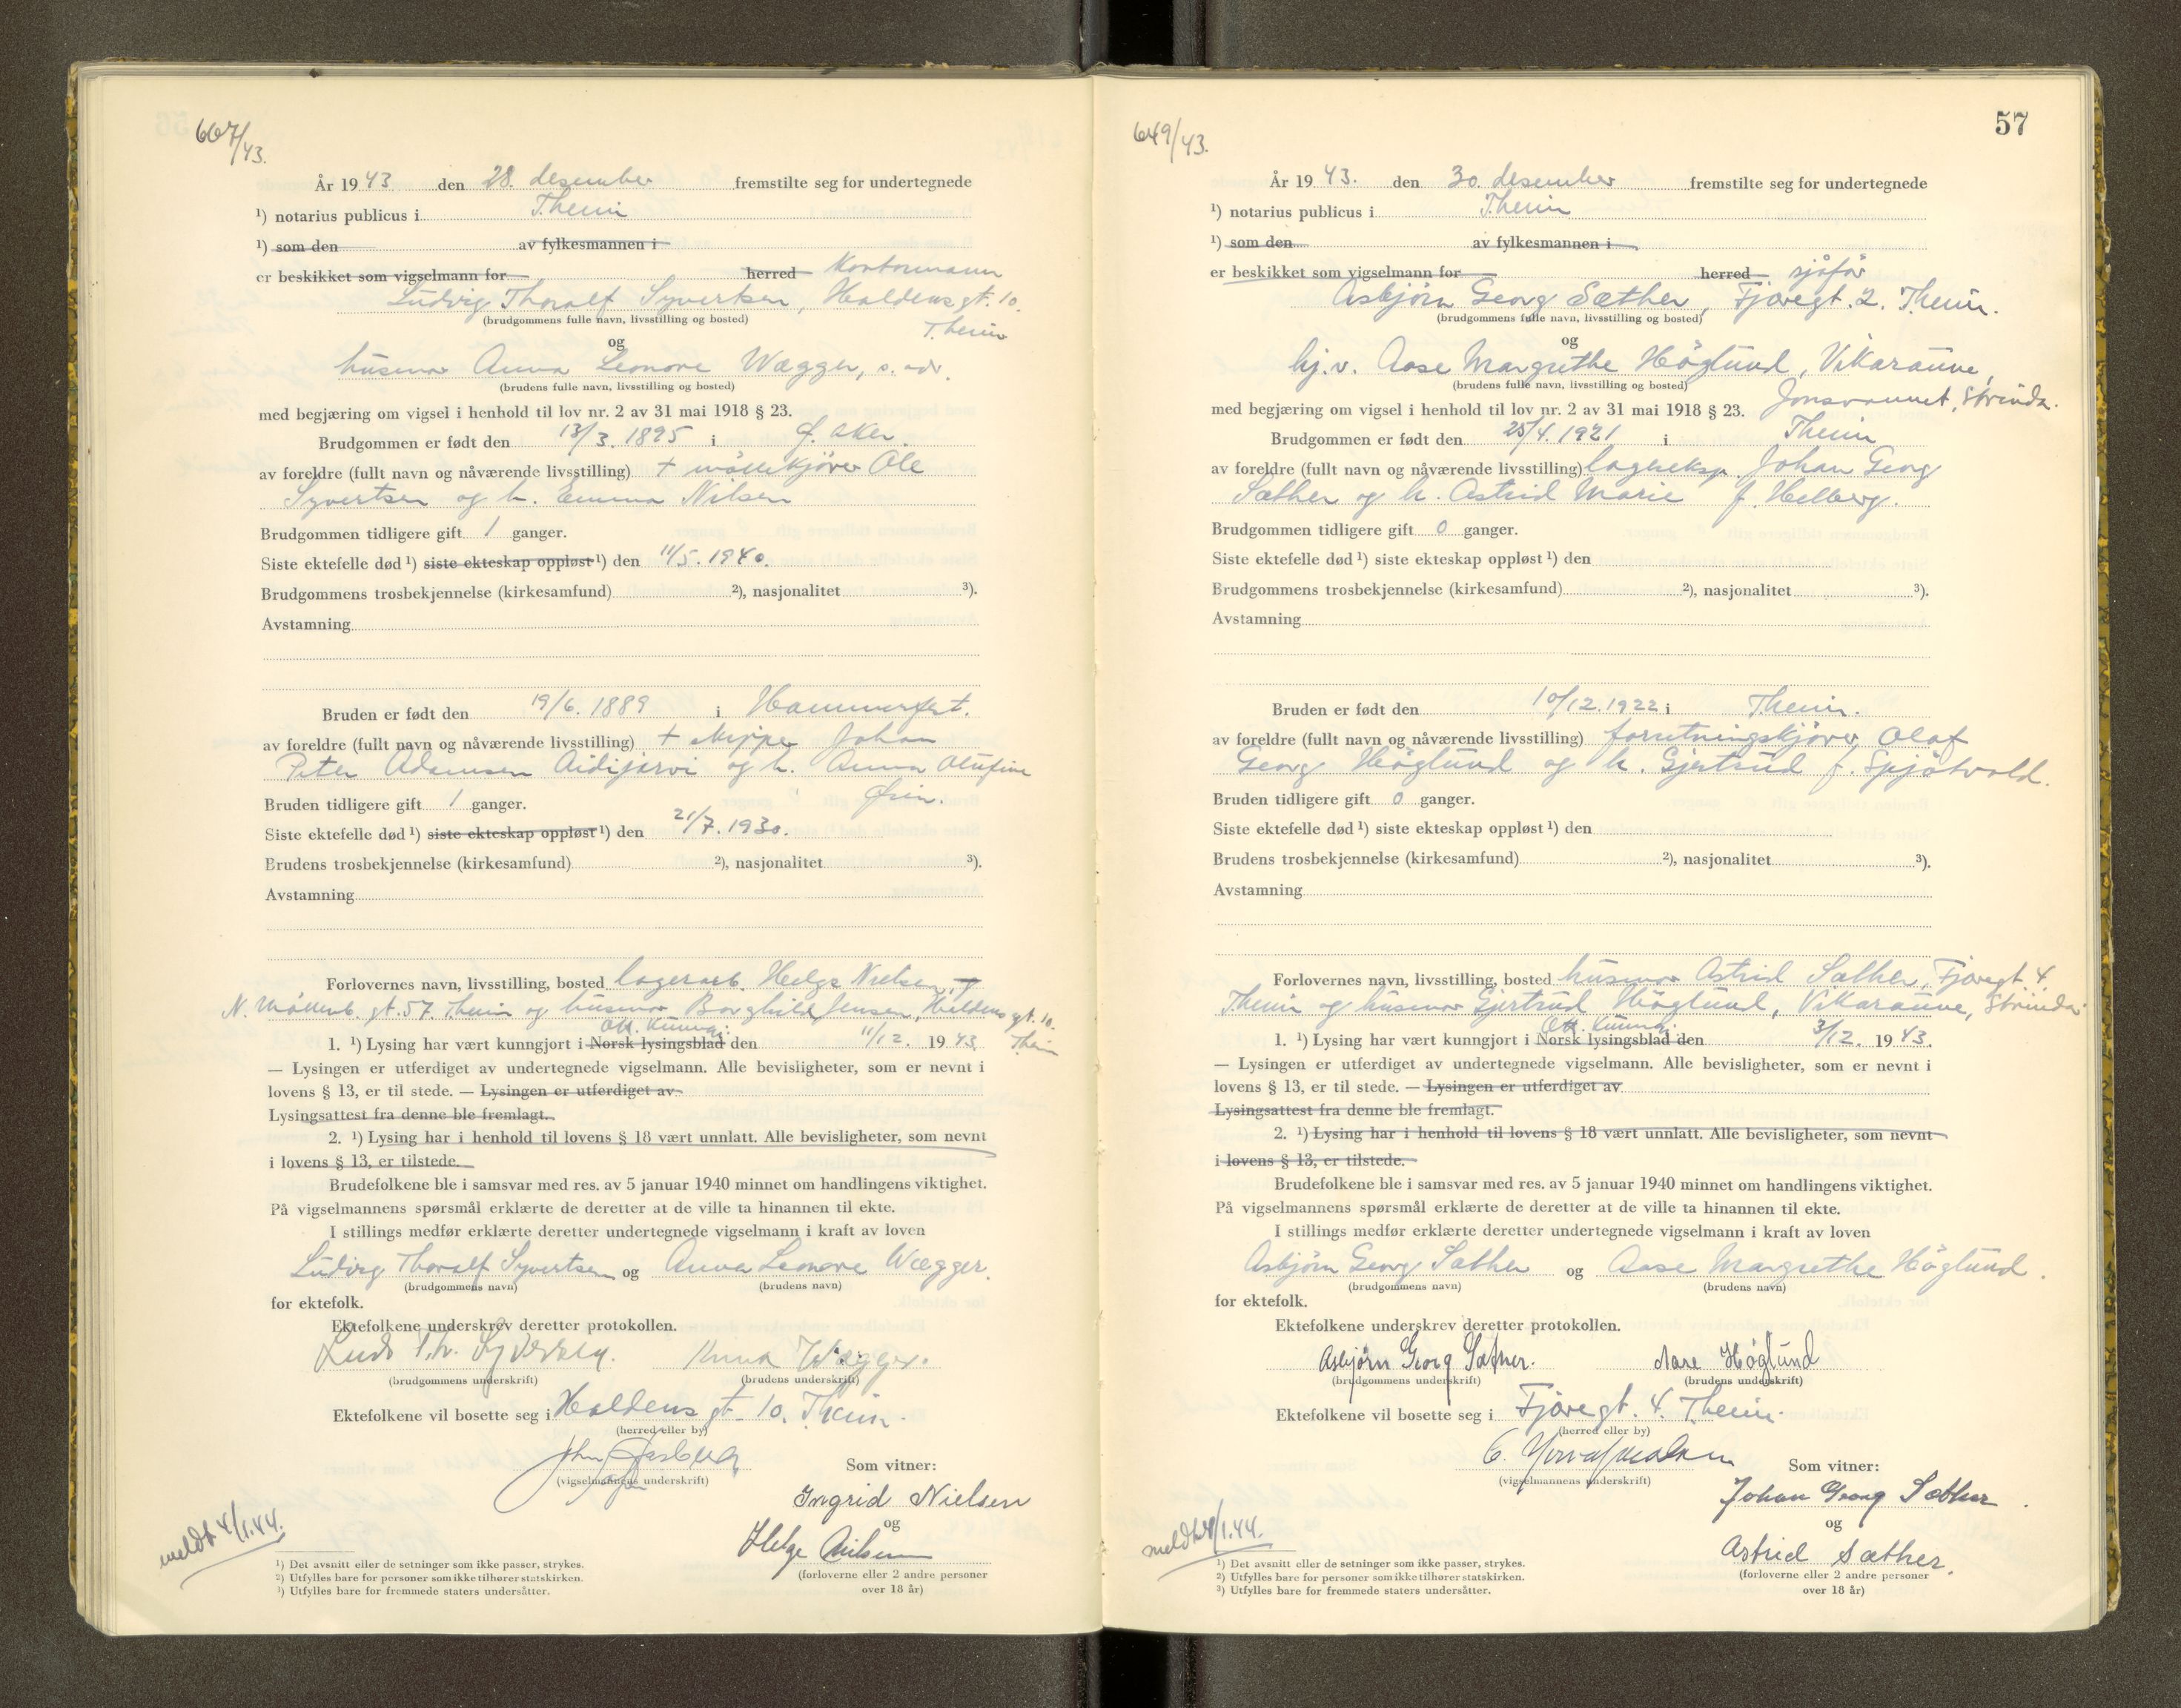 667/43.
År 1943 den 28. desember fremstilte seg for undertegnede
¹) notarius publicus i T.heim
¹) som den av fylkesmannen i
er beskikket som vigselmann for herred Kontormann
Ludvig Thoralf Syvertsen, Haldens gt. 10.
(brudgommens fulle navn, livsstilling og bosted)
T.heim
og
husmor Anna Leonore Wægger, s. adr.
(brudens fulle navn, livsstilling og bosted)
med begjæring om vigsel i henhold til lov nr. 2 av 31 mai 1918 § 23.
Brudgommen er født den 13/3. 1895 i Ø. Aker.
av foreldre (fullt navn og nåværende livsstilling) + møllekjører Ole
Syvertsen og h. Emma Nilsen
Brudgommen tidligere gift 1 ganger.
Siste ektefelle død ¹) siste ekteskap oppløst ¹) den 11/5. 1940.
Brudgommens trosbekjennelse (kirkesamfund) ²), nasjonalitet ³).
Avstamning
Bruden er født den 19/6. 1889 i Hammerfest.
av foreldre (fullt navn og nåværende livsstilling) + skipper Johan
Peter Adamsen Aidijarvi og h. Anna Olufine
Bruden tidligere gift 1 ganger.
Siste ektefelle død ¹) siste ekteskap oppløst ¹) den 21/7. 1930.
Brudens trosbekjennelse (kirkesamfund) ²), nasjonalitet ³).
Avstamning
Forlovernes navn, livsstilling, bosted lagerarb. Helge Nielsen,
N. Møllenb. gt. 57. T.heim og husmor Borghild Jensen, Haldens gt. 10.
T.heim
Off. kunngj.
1. ¹) Lysing har vært kunngjort i Norsk lysingsblad den 11/12. 1943.
— Lysingen er utferdiget av undertegnede vigselmann. Alle bevisligheter, som er nevnt i
lovens § 13, er til stede. — Lysingen er utferdiget av
Lysingsattest fra denne ble fremlagt.
2. ¹) Lysing har i henhold til lovens § 18 vært unnlatt. Alle bevisligheter, som nevnt
i lovens § 13, er tilstede.
Brudefolkene ble i samsvar med res. av 5 januar 1940 minnet om handlingens viktighet.
På vigselmannens spørsmål erklærte de deretter at de ville ta hinannen til ekte.
I stillings medfør erklærte deretter undertegnede vigselmann i kraft av loven
Ludvig Thoralf Syvertsen og Anna Leonore Wægger.
(brudgommens navn) (brudens navn)
for ektefolk.
Ektefolkene underskrev deretter protokollen.
Ludv Th. Syvertsen. Anna Wægger.
(brudgommens underskrift) (brudens underskrift)
Ektefolkene vil bosette seg i Haldens gt. 10. T.heim.
(herred eller by)
(vigselmannens underskrift)
Som vitner:
Ingrid Nielsen
og
Helge Nielsen
(forloverne eller 2 andre personer
over 18 år)
meldt 4/1.44.
¹) Det avsnitt eller de setninger som ikke passer, strykes.
²) Utfylles bare for personer som ikke tilhører statskirken.
³) Utfylles bare for fremmede staters undersåtter.
57
649/43.
År 1943. den 30. desember fremstilte seg for undertegnede
¹) notarius publicus i T.heim
¹) som den av fylkesmannen i
er beskikket som vigselmann for herred sjåfør
Asbjørn Georg Sæther, Fjæregt. 2. T.heim.
(brudgommens fulle navn, livsstilling og bosted)
og
hj.v. Aase Margrethe Höglund, Vikaraune,
(brudens fulle navn, livsstilling og bosted)
med begjæring om vigsel i henhold til lov nr. 2 av 31 mai 1918 § 23. Jonsvannet, Strinda.
Brudgommen er født den 25/4. 1921 i T.heim
av foreldre (fullt navn og nåværende livsstilling) lagereksp. Johan Georg
Sæther og h. Astrid Marie f. Helberg.
Brudgommen tidligere gift 0 ganger.
Siste ektefelle død ¹) siste ekteskap oppløst ¹) den
Brudgommens trosbekjennelse (kirkesamfund) ²), nasjonalitet ³).
Avstamning
Bruden er født den 10/12. 1922 i T.heim.
av foreldre (fullt navn og nåværende livsstilling) forretningskjører Olaf
Georg Höglund og h. Gjertrud f. Spjøtvold.
Bruden tidligere gift 0 ganger.
Siste ektefelle død ¹) siste ekteskap oppløst ¹) den
Brudens trosbekjennelse (kirkesamfund) ²), nasjonalitet ³).
Avstamning
Forlovernes navn, livsstilling, bosted husmor Astrid Sæther, Fjæregt. 4.
T.heim og husmor Gjertrud Höglund, Vikaraune, Strinda.
Off. kunngj.
1. ¹) Lysing har vært kunngjort i Norsk lysingsblad den 3/12. 1943.
— Lysingen er utferdiget av undertegnede vigselmann. Alle bevisligheter, som er nevnt i
lovens § 13, er til stede. — Lysingen er utferdiget av
Lysingsattest fra denne ble fremlagt.
2. ¹) Lysing har i henhold til lovens § 18 vært unnlatt. Alle bevisligheter, som nevnt
i lovens § 13, er tilstede.
Brudefolkene ble i samsvar med res. av 5 januar 1940 minnet om handlingens viktighet.
På vigselmannens spørsmål erklærte de deretter at de ville ta hinannen til ekte.
I stillings medfør erklærte deretter undertegnede vigselmann i kraft av loven
Asbjørn Georg Sæther og Aase Margrethe Höglund.
(brudgommens navn) (brudens navn)
for ektefolk.
Ektefolkene underskrev deretter protokollen.
Asbjørn Georg Sæther. Aase Höglund
(brudgommens underskrift) (brudens underskrift)
Ektefolkene vil bosette seg i Fjæregt. 4. T.heim.
(herred eller by)
(vigselmannens underskrift)
Som vitner:
Johan Georg Sæther.
og
Astrid Sæther.
(forloverne eller 2 andre personer
over 18 år)
meldt 4/1.44.
¹) Det avsnitt eller de setninger som ikke passer, strykes.
²) Utfylles bare for personer som ikke tilhører statskirken.
³) Utfylles bare for fremmede staters undersåtter.